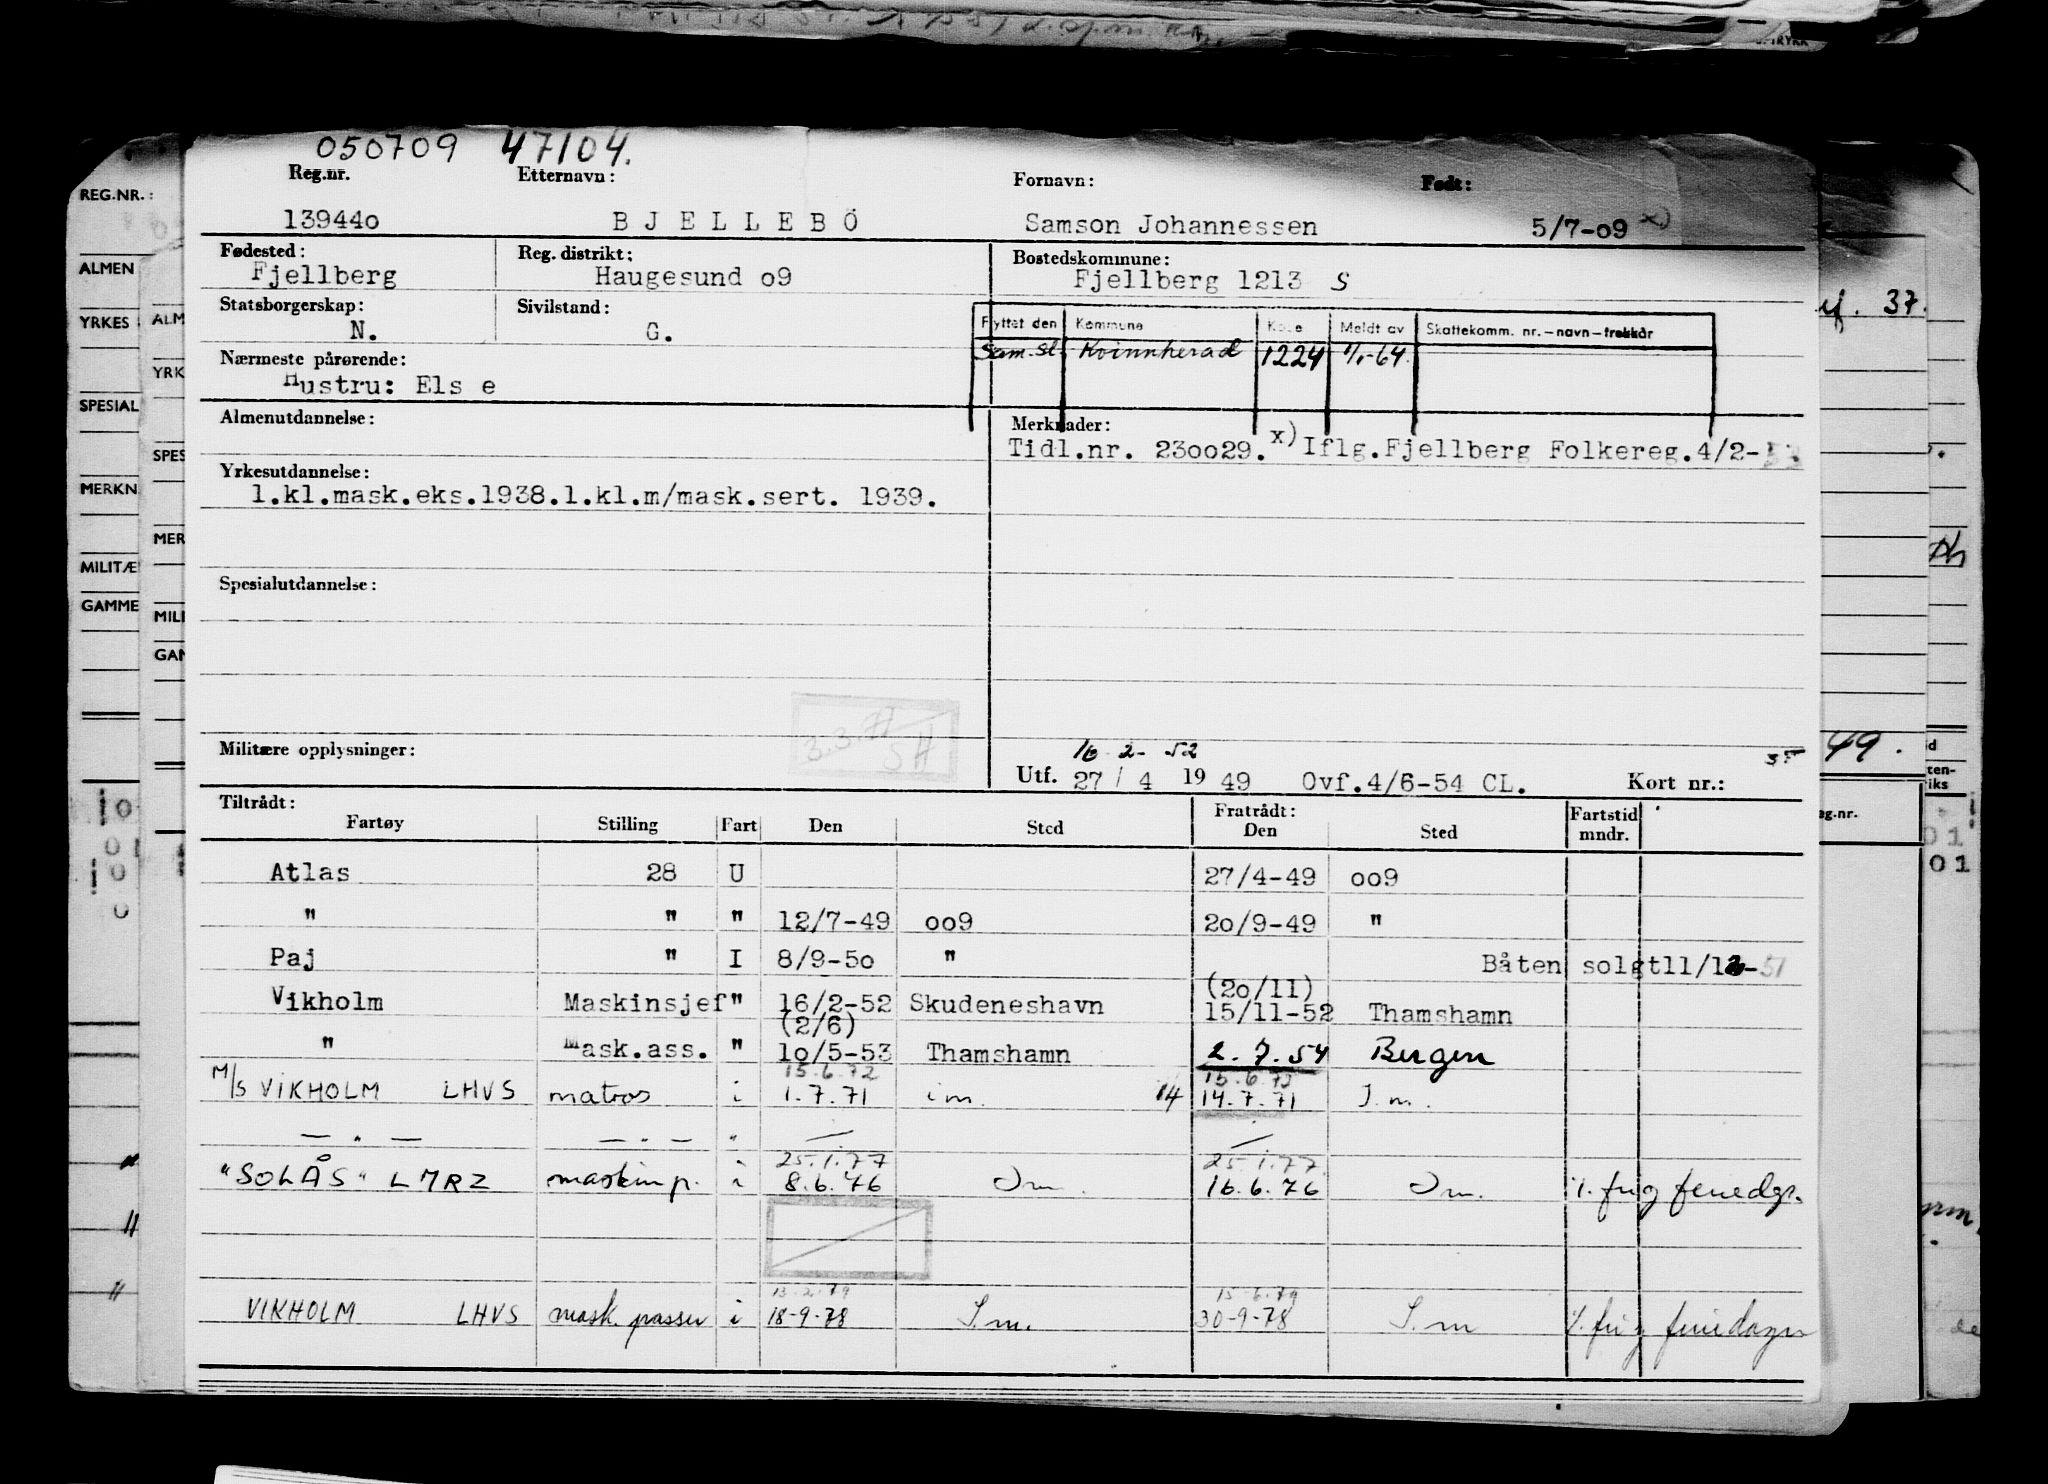 050709 47104.
Reg.nr. Etternavn: Fornavn: Født:
139440 BJELLEBÖ Samson Johannessen 5/7-09 x)
Fødested: Reg. distrikt: Bostedskommune:
Fjellberg Haugesund o9 Fjellberg 1213 S
Statsborgerskap: Sivilstand:
N. G.
Flyttet den Kommune Kode Meldt av Skattekomm. nr.–navn–trekkår
Sam. st. Kvinnherad 1224 1/1-64.
Nærmeste pårørende:
Hustru: Els e
Almenutdannelse: Merknader:
Tidl.nr. 230029. x) Iflg.Fjellberg Folkereg.4/2-
Yrkesutdannelse:
1.kl.mask.eks.1938.1.kl.m/mask.sert. 1939.
Spesialutdannelse:
3.3.77
SH
Militære opplysninger:
16-2-52
Utf. 27/4 1949 Ovf.4/6-54 CL. Kort nr.:
Tiltrådt: Fratrådt: Fartstid
Fartøy Stilling Fart Den Sted Den Sted mndr.
Atlas 28 U 27/4-49 oo9
" " " 12/7-49 oo9 20/9-49 "
Paj " I 8/9-5o " Båten solgt11/12-51
(20/11)
Vikholm Maskinsjef " 16/2-52 Skudeneshavn 15/11-52 Thamshamn
(2/6)
" Mask.ass. " 1o/5-53 Thamshamn 2.7.54 Bergen
15.6.72 15.6.72
M/S VIKHOLM LHVS matros i 1.7.71 im. 14 14.7.71 J.m.
— " — — " — "
25.1.77 25.1.77
"SOLÅS" LMRZ maskinp. i 8.6.76 Jm. 16.6.76 Jm. %. fri g feriedgr.
13.2.79 15.6.79
VIKHOLM LHVS mask. passer i 18-9-78 I.m. 30-9-78 I.m %. fri g feriedager
REG.NR.:
ALMEN
YRKES
SPESIAL
MERKN
MILITÆ
GAMME
ALM
YRK
SPES
MER
MILI
GAN
37.
49.